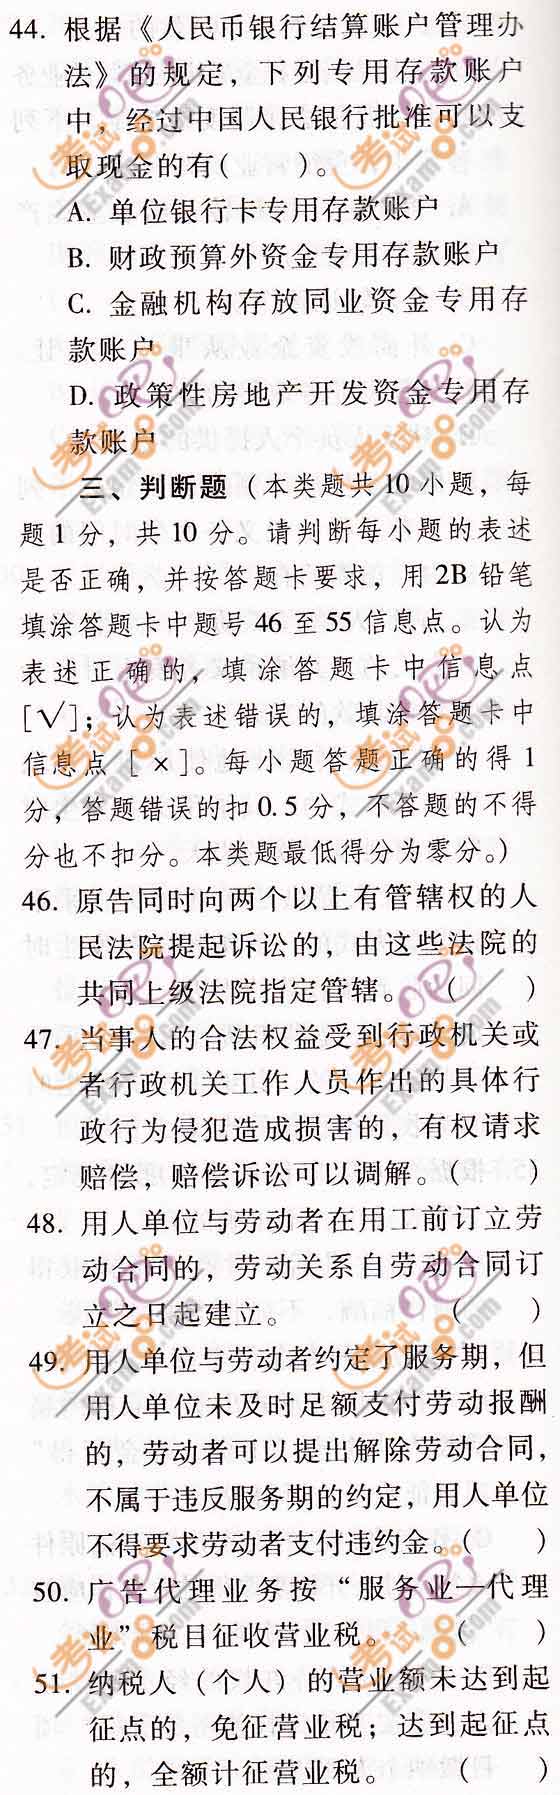 44. 根据《人民币银行结算账户管理办
法》的规定，下列专用存款账户
中，经过中国人民银行批准可以支
取现金的有(　　)。
A. 单位银行卡专用存款账户
B. 财政预算外资金专用存款账户
C. 金融机构存放同业资金专用存
款账户
D. 政策性房地产开发资金专用存
款账户
三、判断题（本类题共 10 小题，每
题 1 分，共 10 分。请判断每小题的表述
是否正确，并按答题卡要求，用 2B 铅笔
填涂答题卡中题号 46 至 55 信息点。认为
表述正确的，填涂答题卡中信息点
[√]；认为表述错误的，填涂答题卡中
信息点 [×]。每小题答题正确的得 1
分，答题错误的扣 0.5 分，不答题的不得
分也不扣分。本类题最低得分为零分。）
46. 原告同时向两个以上有管辖权的人
民法院提起诉讼的，由这些法院的
共同上级法院指定管辖。（　　）
47. 当事人的合法权益受到行政机关或
者行政机关工作人员作出的具体行
政行为侵犯造成损害的，有权请求
赔偿，赔偿诉讼可以调解。（　　）
48. 用人单位与劳动者在用工前订立劳
动合同的，劳动关系自劳动合同订
立之日起建立。（　　）
49. 用人单位与劳动者约定了服务期，但
用人单位未及时足额支付劳动报酬
的，劳动者可以提出解除劳动合同，
不属于违反服务期的约定，用人单位
不得要求劳动者支付违约金。（　　）
50. 广告代理业务按“服务业—代理
业”税目征收营业税。（　　）
51. 纳税人（个人）的营业额未达到起
征点的，免征营业税；达到起征点
的，全额计征营业税。（　　）